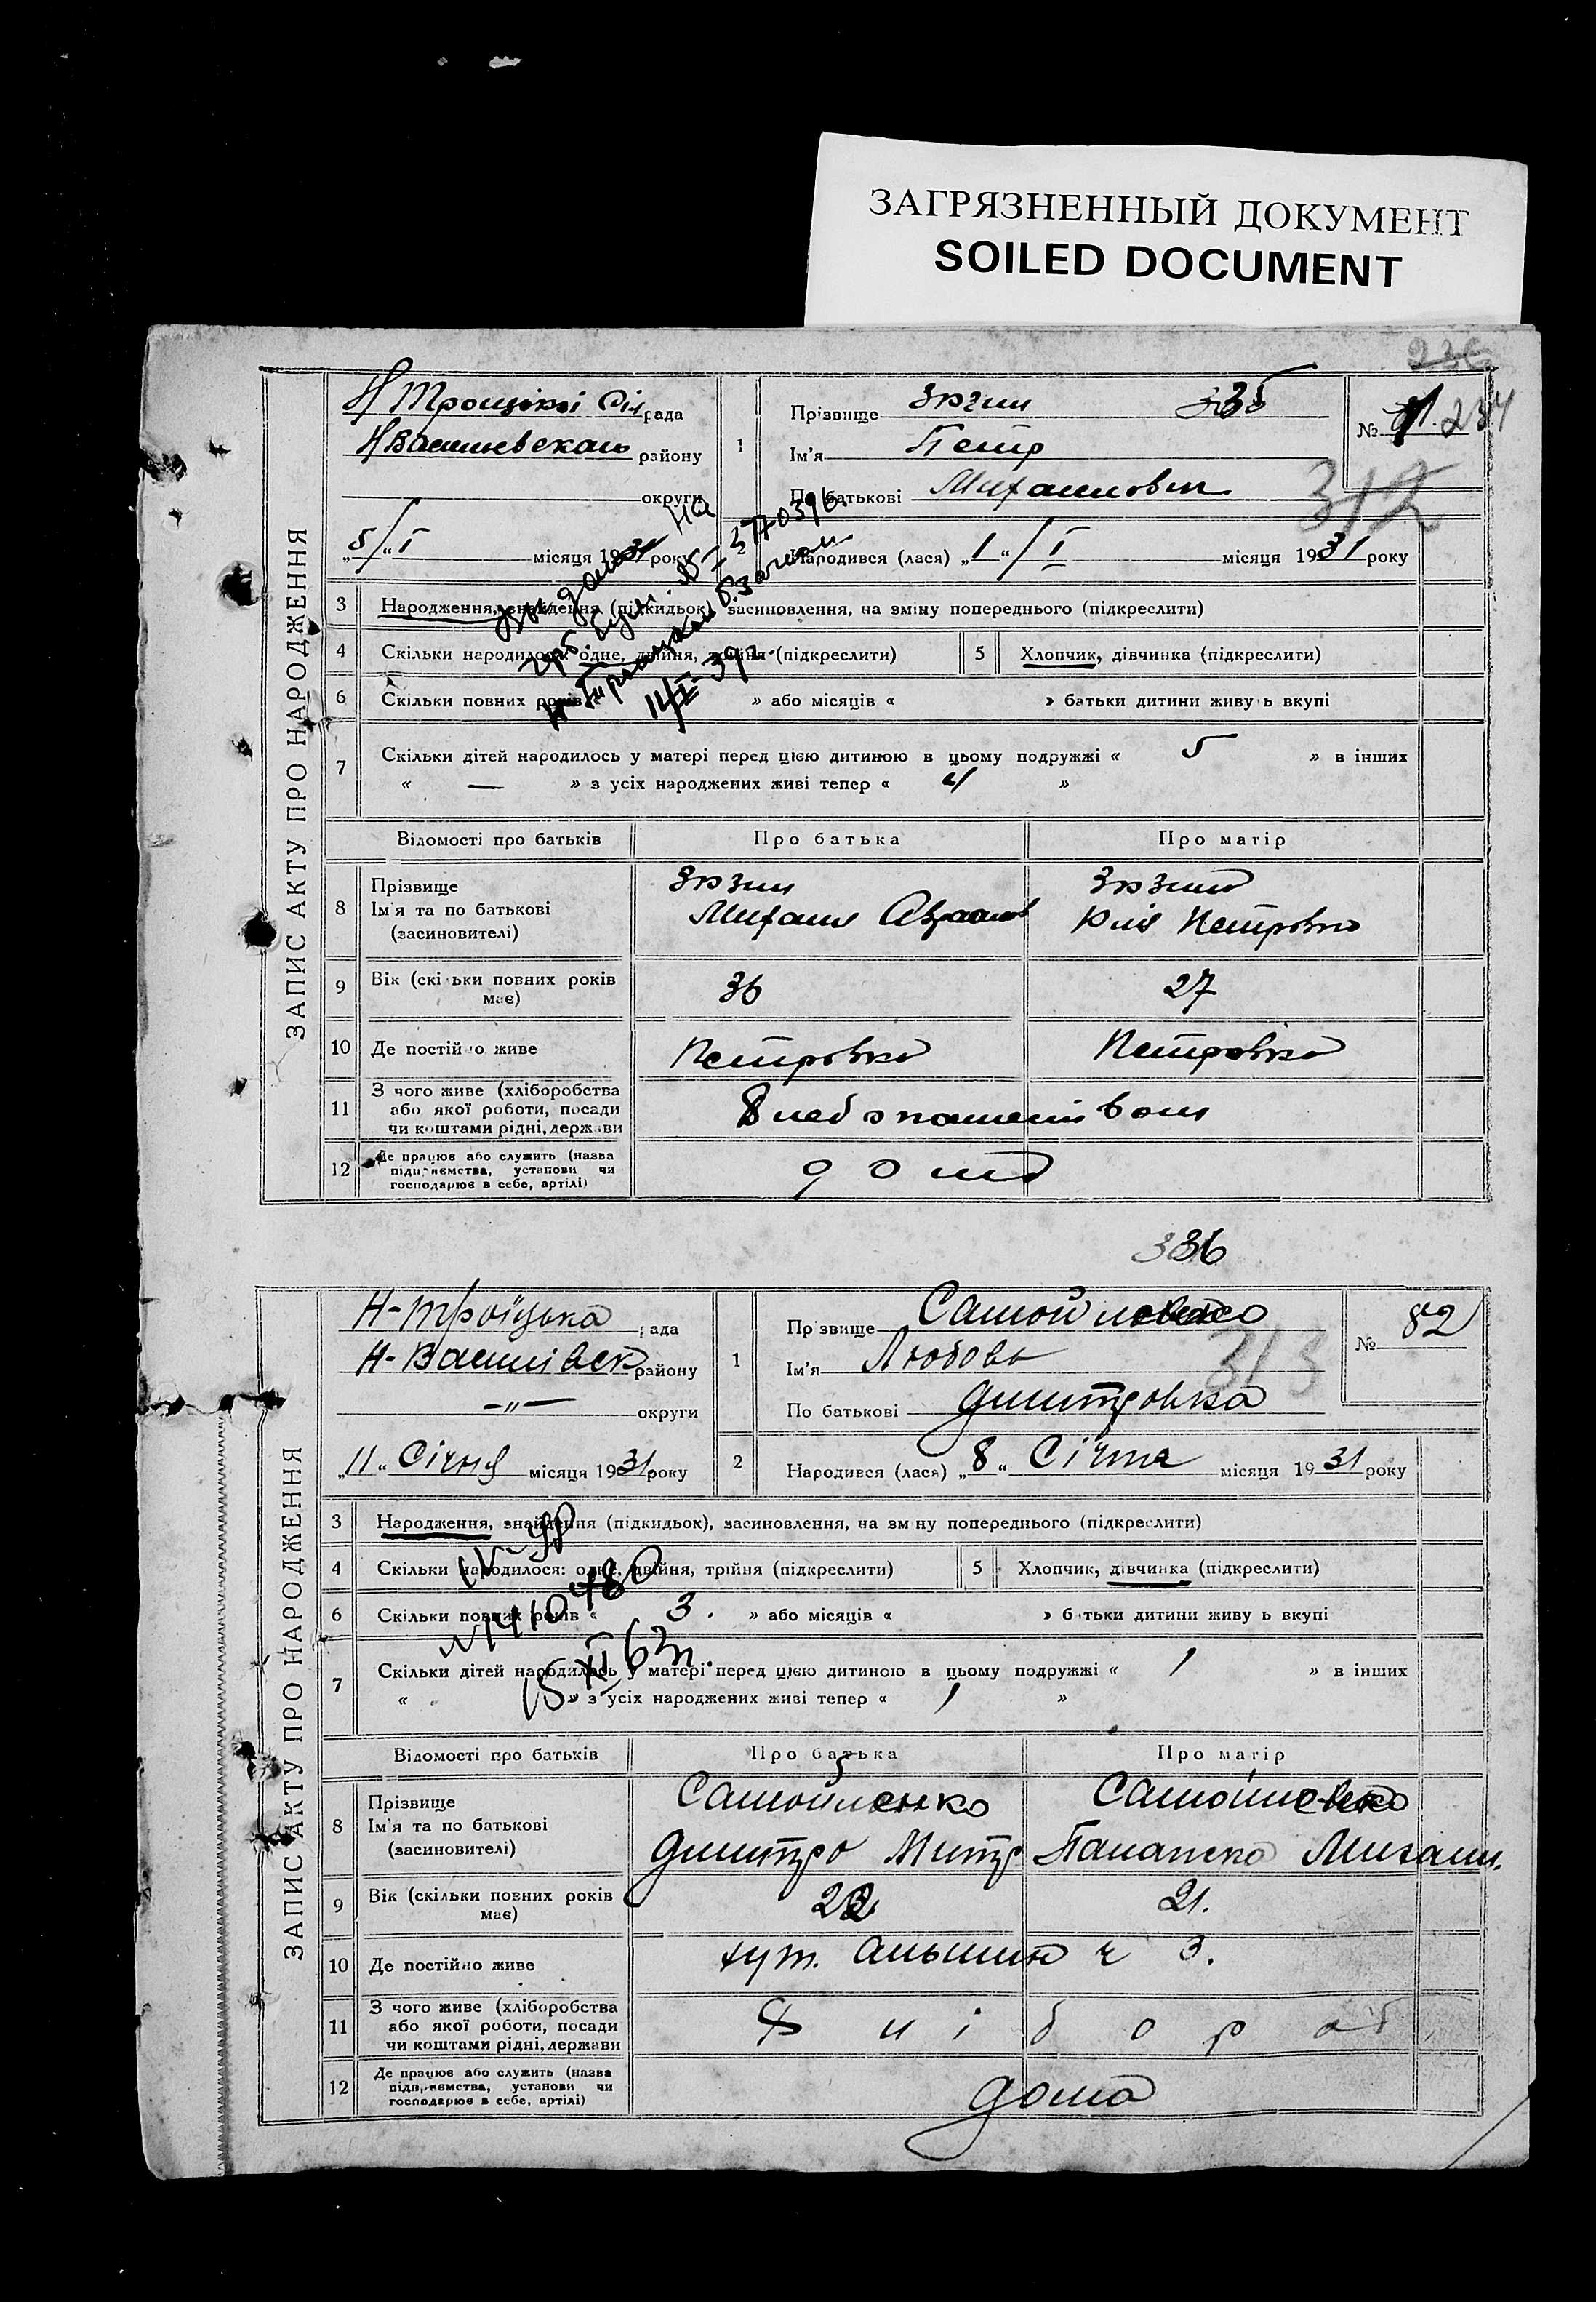 ЗАГРЯЗНЕННЫЙ ДОКУМЕНТ
SOILED DOCUMENT
236
ЗАПИС АКТУ ПРО НАРОДЖЕННЯ
Н Троицкої Сільрада
району
округи
„5/“ I місяця 1931 року
1
Прізвище Зюзин 335
Ім'я Петр
По батькові Михаилович
№ 81. 234
312
2 Народився (лася) „1“/I місяця 1931 року
3 Народження, знайдення (підкидьок), засиновлення, на зміну попереднього (підкреслити)
4 Скільки народилося: одне, двійня, трійня (підкреслити)
5 Хлопчик, дівчинка (підкреслити)
6 Скільки повних років « » або місяців « » батьки дитини живуть вкупі
7 Скільки дітей народилось у матері перед цією дитиною в цьому подружжі « 5 » в інших
« — » з усіх народжених живі тепер « 4 »
Відомості про батьків Про батька Про матір
8 Прізвище
Ім'я та по батькові
(засиновителі)
Зюзин
Михаил
Зюзина
Юлія Петровна
9 Вік (скільки повних років має) 36 27
10 Де постійно живе Петровка Петровка
11 З чого живе (хліборобства
або якої роботи, посади
чи коштами рідні, держави
12 Де працює або служить (назва
підприємства, установи чи
господарює в себе, артілі)
дома
336
ЗАПИС АКТУ ПРО НАРОДЖЕННЯ
Н-Троїцька рада
Н-Василівськ району
-„- округи
„11“ Січня місяця 1931 року
1
Прізвище Самойленко
Ім'я Любовь
По батькові Дмитровна
№ 82
313
2 Народився (лася) „8“ Січня місяця 1931 року
3 Народження, знайдення (підкидьок), засиновлення, на зміну попереднього (підкреслити)
4 Скільки народилося: одне, двійня, трійня (підкреслити)
5 Хлопчик, дівчинка (підкреслити)
6 Скільки повних років « 3. » або місяців « » батьки дитини живуть вкупі
№ 1410780
15 XI 63г.
7 Скільки дітей народилось у матері перед цією дитиною в цьому подружжі « 1 » в інших
« » з усіх народжених живі тепер « 1 »
Відомості про батьків Про батька Про матір
8 Прізвище
Ім'я та по батькові
(засиновителі)
Самойленко
Дмитро Митр
Самойленко
9 Вік (скільки повних років має) 21.
10 Де постійно живе хут.
11 З чого живе (хліборобства
або якої роботи, посади
чи коштами рідні, держави
Хлібороб
12 Де працює або служить (назва
підприємства, установи чи
господарює в себе, артілі)
дома